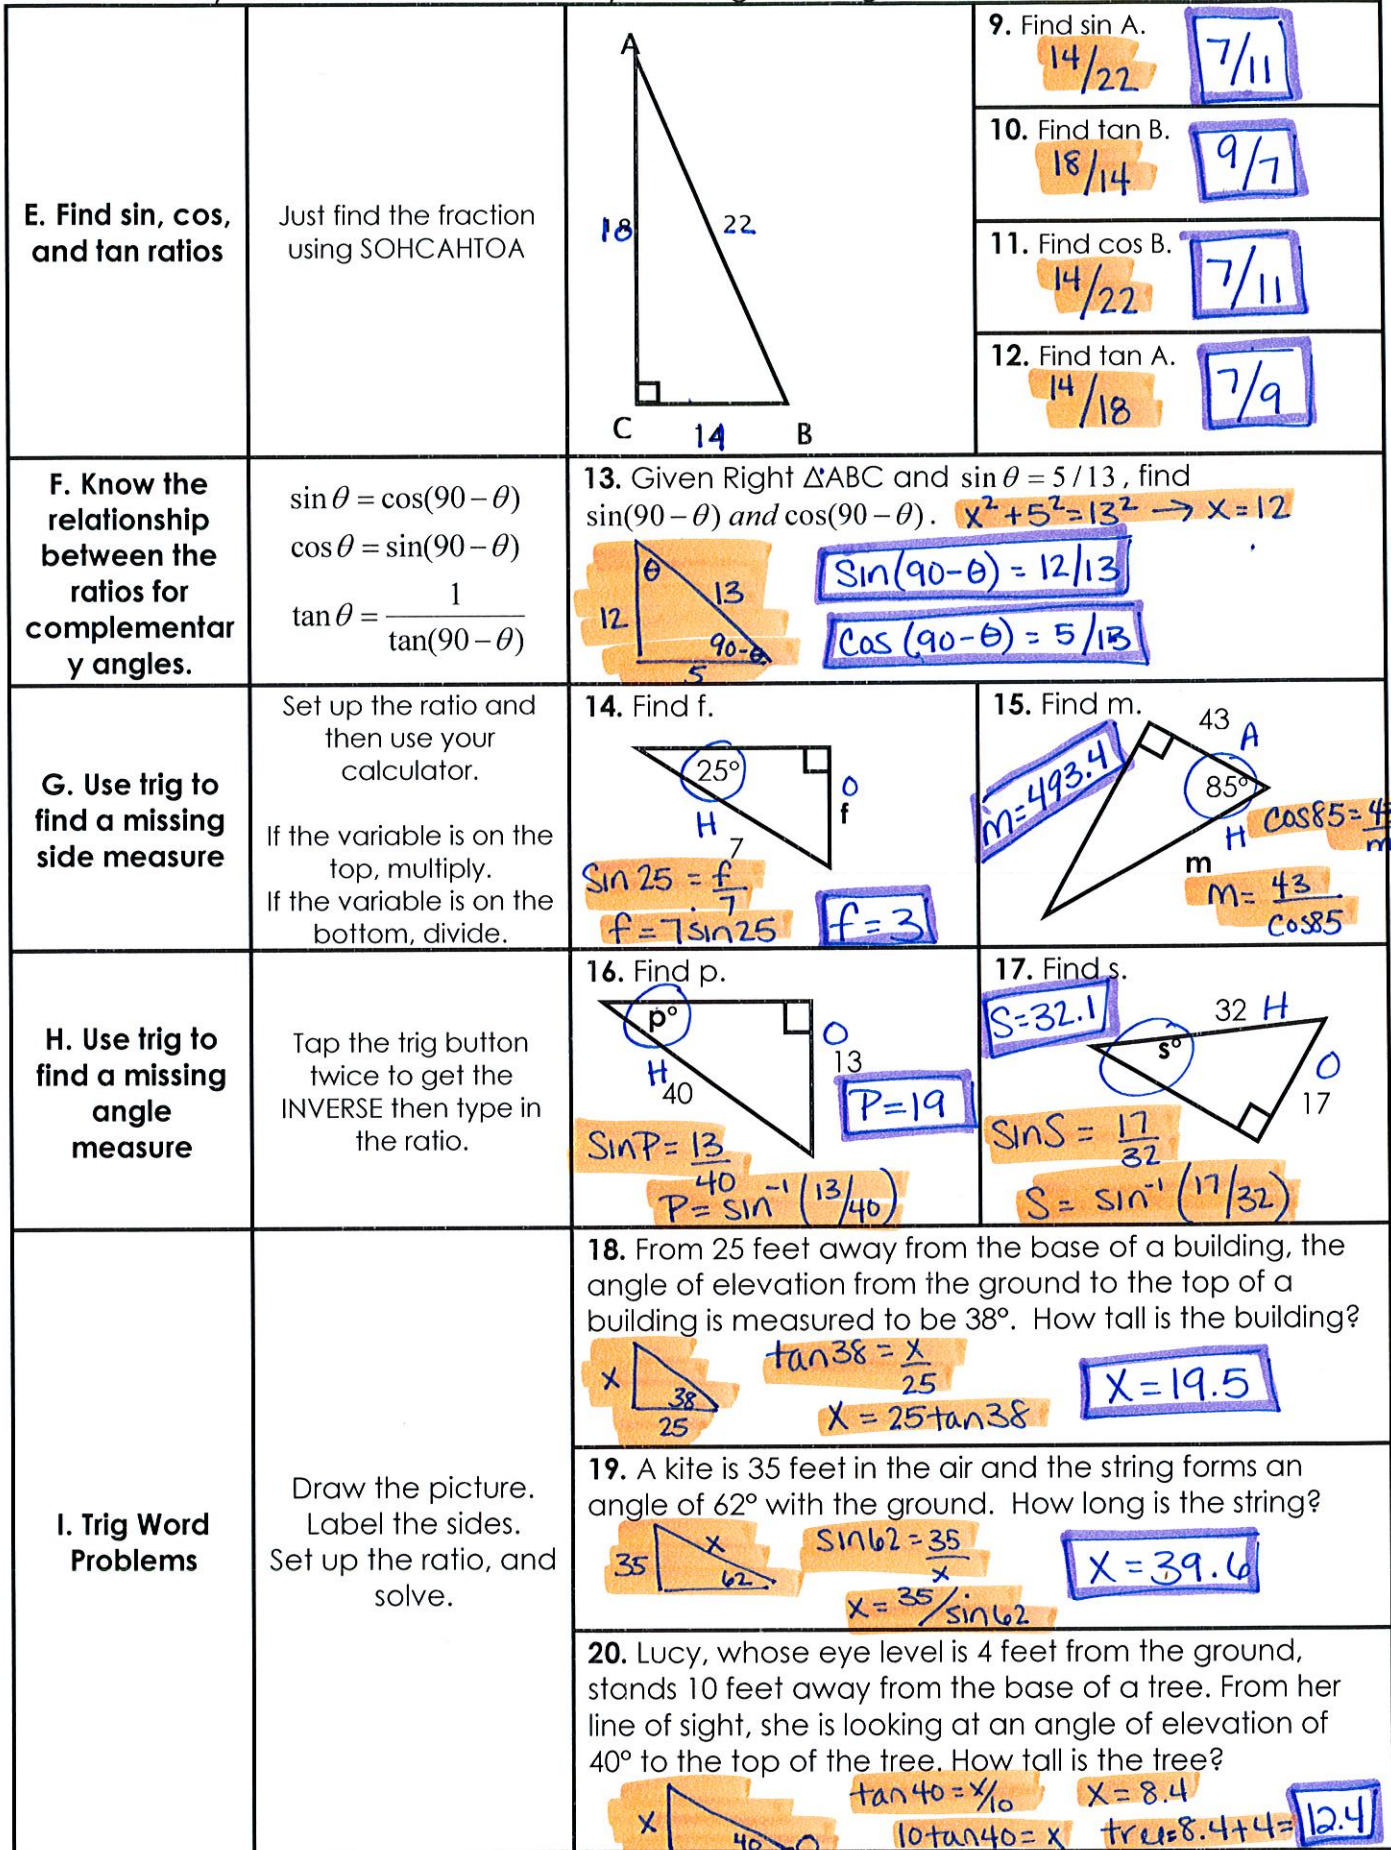 E. Find sin, cos,
and tan ratios
Just find the fraction
using SOHCAHTOA
A
18
22
C
14
B
9. Find sin A.
14/22
7/11
10. Find tan B.
18/14
9/7
11. Find cos B.
14/22
7/11
12. Find tan A.
14/18
7/9
F. Know the
relationship
between the
ratios for
complementar
y angles.
sin θ = cos(90 − θ)
cos θ = sin(90 − θ)
tan θ = 1/tan(90 − θ)
13. Given Right ΔABC and sin θ = 5 / 13, find
sin(90 − θ) and cos(90 − θ). x² + 5² = 13² → x = 12
θ
13
12
90-θ
5
Sin(90-θ) = 12/13
Cos (90-θ) = 5/13
G. Use trig to
find a missing
side measure
Set up the ratio and
then use your
calculator.
If the variable is on the
top, multiply.
If the variable is on the
bottom, divide.
14. Find f.
25°
O
f
H
7
Sin 25 = f/7
f = 7sin25
f = 3
15. Find m.
43
A
m=493.4
85°
H
cos85=4
m
m
m= 43/cos85
H. Use trig to
find a missing
angle
measure
Tap the trig button
twice to get the
INVERSE then type in
the ratio.
16. Find p.
p°
O
13
H
40
P=19
SinP= 13/40
P= sin⁻¹ (13/40)
17. Find s.
S=32.1
32 H
s°
O
17
SinS = 17/32
S = sin⁻¹ (17/32)
I. Trig Word
Problems
Draw the picture.
Label the sides.
Set up the ratio, and
solve.
18. From 25 feet away from the base of a building, the
angle of elevation from the ground to the top of a
building is measured to be 38°. How tall is the building?
X
38
25
tan38 = x/25
X = 25tan38
X = 19.5
19. A kite is 35 feet in the air and the string forms an
angle of 62° with the ground. How long is the string?
35
x
62
Sin62 = 35/x
x = 35/sin62
X = 39.6
20. Lucy, whose eye level is 4 feet from the ground,
stands 10 feet away from the base of a tree. From her
line of sight, she is looking at an angle of elevation of
40° to the top of the tree. How tall is the tree?
X
40
tan40 = x/10
10tan40 = x
X = 8.4
tree=8.4+4= 12.4